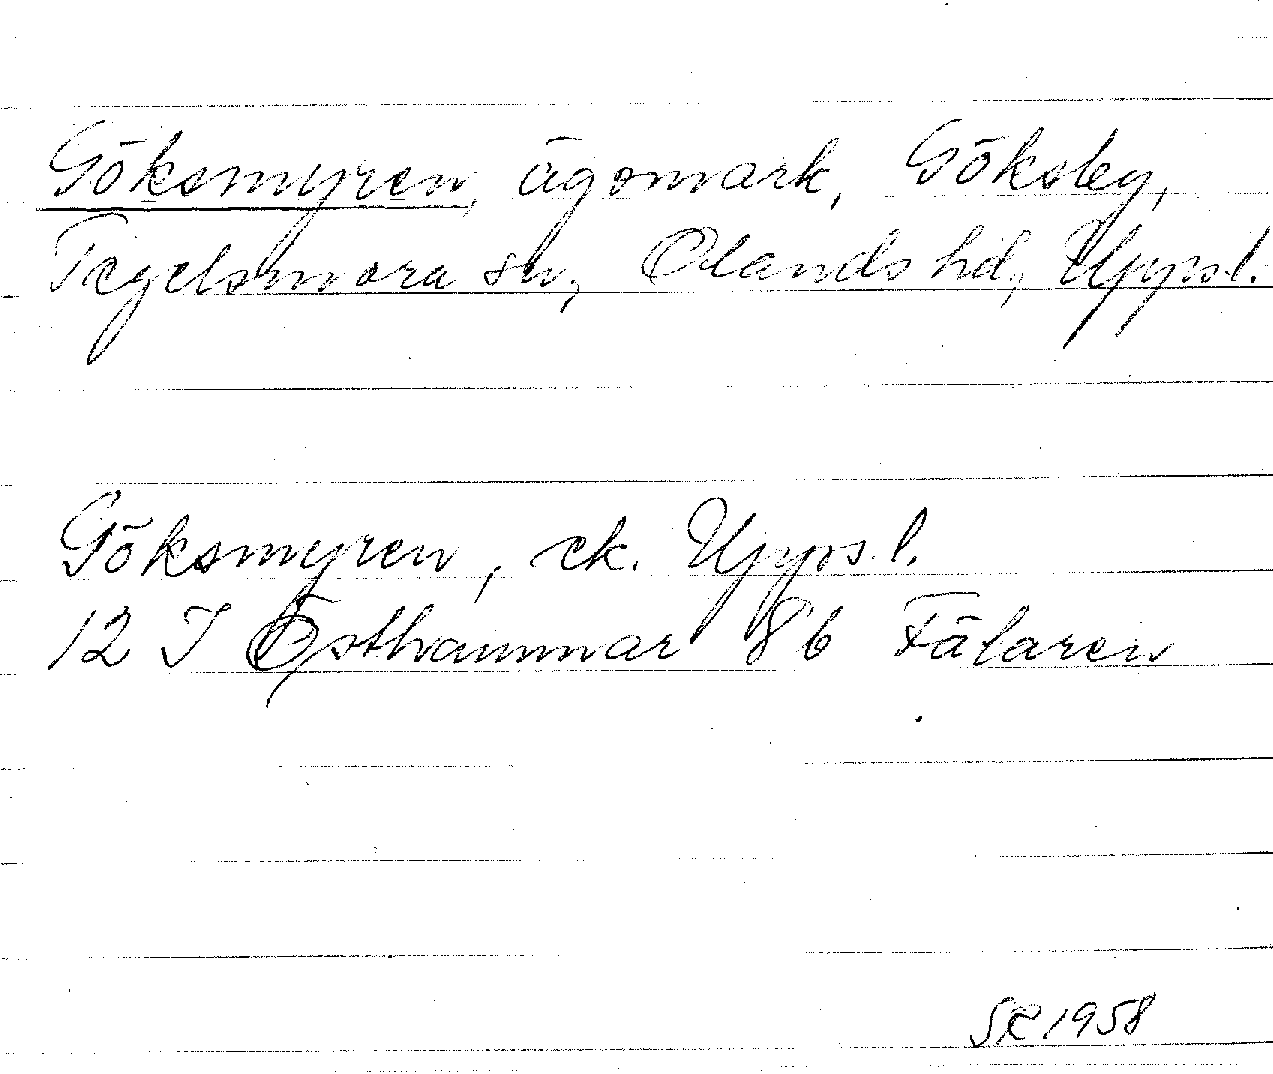 Göksmyren, ägomark, Göksby,
Tegelsmora sn, Olands hd, Uppsl.
Göksmyren, ek. Uppsl.
12 I Östhammar 8b Fälaren
SR 1958